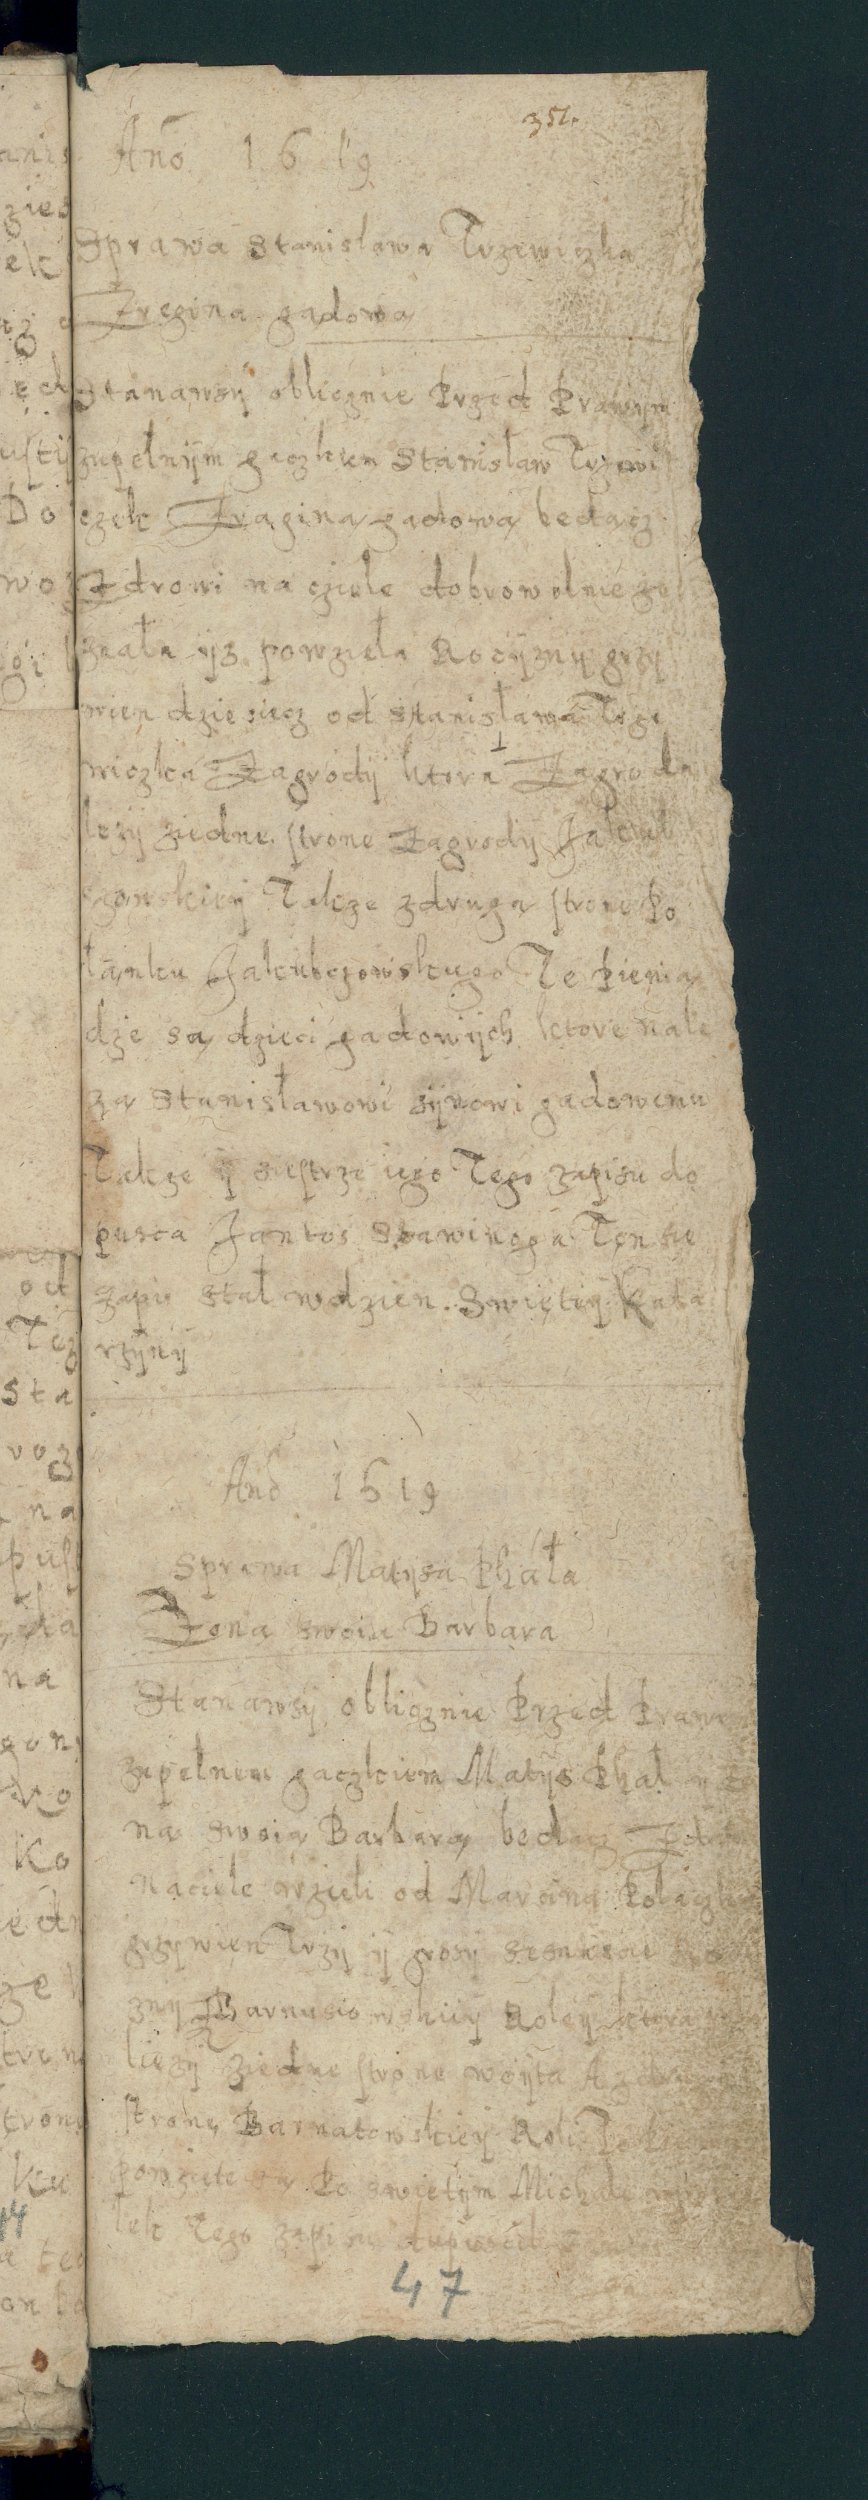 351.
Año 1619
Sprawa Stanisława Trzewiczka
Zregina gadowa
Stanawsy oblicznie Przed Prawym
zupełnÿm gaczkiem Stanisław Trzewi
czek Zragina gadową bedacz
Zdrowi na cziele dobrowolnie ze
znała ÿz powzieła Roczÿznÿ grzÿ
wien dziesiecz od Stanisława Trze
wiczka Zagrodÿ ktora Zagroda
lezÿ ziedne strone Zagrodÿ Jakub
czowskieÿ Takze zdruga strone Po
łanku Jakubczowskiego Te Pienia
dze sa dzieci gadowÿch ktore nale
za Stanisławowi sÿnowi gadowemu
Takze ÿ siestrze iego Tego zapisu do
pusca Jantos Stawinoga Ten sie
zapis stał wdzien Swietÿ Kata
rzÿnÿ
Ano 1619
Sprawa Matysa Phała
Zona swoia Barbara
Stanawsÿ oblicznie Przed Praw
zupełnem gaczkiem Matÿs Phał
na swoia Barbara bedacz Zdro
naciele wzieli od Marcina
grzywien Trzÿ ÿ grosÿ
znÿ Barnusiowskieÿ Roleÿ ktora
liezÿ ziedne strone woÿta A zdru
strone Barnatowskieÿ Roli
powziete sa Po swietÿm Michale
lek Tego zapisu dupuscił
47